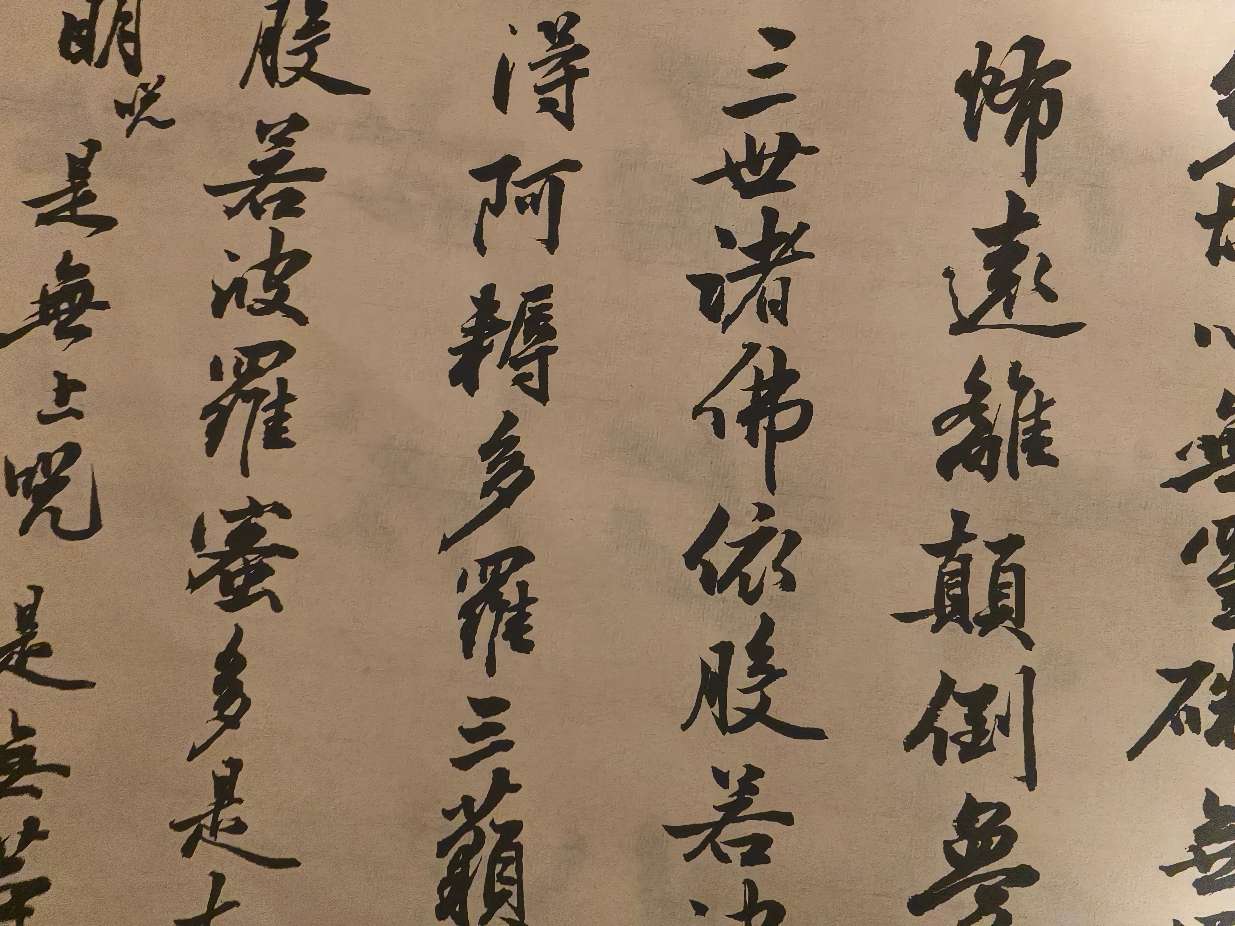 多故心無罣礙無罣
怖遠離顛倒夢
三世諸佛依般若波
得阿耨多羅三藐
般若波羅蜜多是大
明呪是無上呪是無等